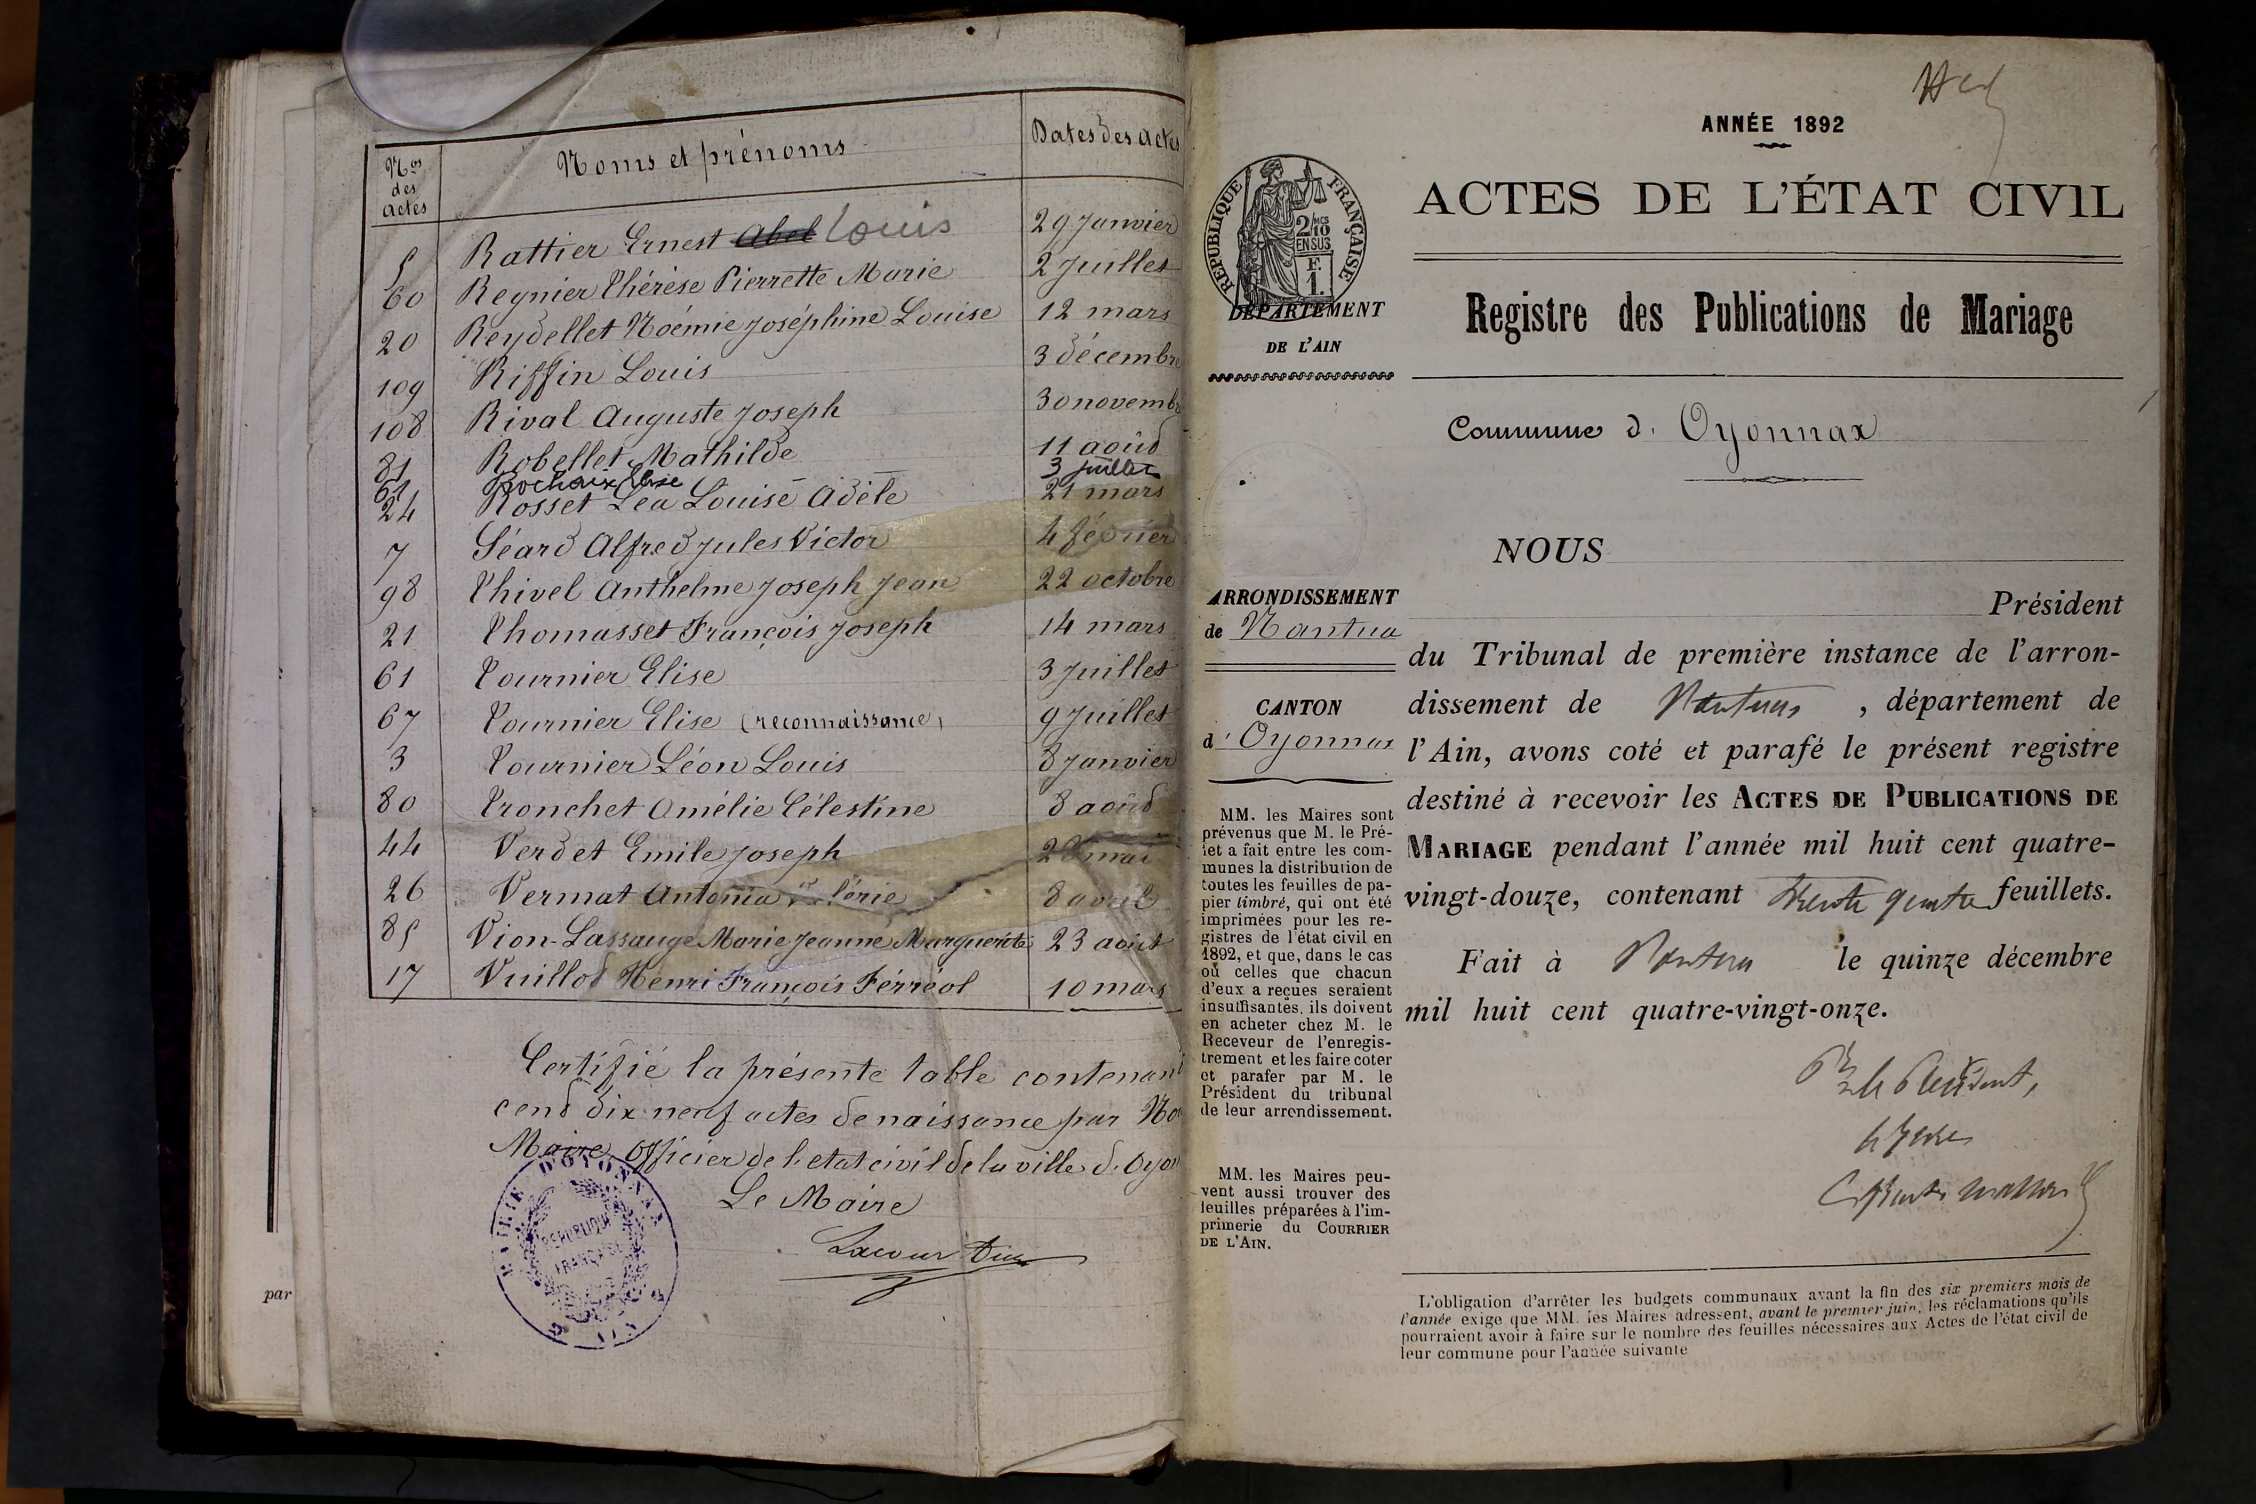 Nos des actes Noms et prénoms Dates des actes
5 Rattier Ernest Abel Louis 29 Janvier
60 Reynier Thérèse Pierrette Marie 2 Juillet
20 Reydellet Noémie Joséphine Louise 12 mars
109 Riffin Louis 3 décembre
108 Rival Auguste Joseph 30 novemb
81 Robellet Mathilde 11 août
61 Rochaix Elise 3 Juillet
24 Rosset Léa Louise Adèle 21 mars
7 Séard Alfred Jules Victor 4 février
98 Thivel Anthelme Joseph Jean 22 octobre
21 Thomasset François Joseph 14 mars
61 Tournier Elise 3 Juillet
67 Tournier Elise (reconnaissance) 9 Juillet
3 Tournier Léon Louis 8 Janvier
80 Tronchet Amélie Célestine 8 août
44 Verdet Emile Joseph mai
26 Vermat Antonia 8 avril
85 Vion-Lassauge Marie Jeanne Marguerite 23 août
17 Vuillod Henri François Férréol 10 mars
Certifié la présente table contenant
cent dix neuf actes de naissance par
Maire officier de l'etat civil de la ville d'Oyon
Le Maire
MAIRIE D'OYONNAX
RÉPUBLIQUE
FRANÇAISE
AIN
par
ANNÉE 1892
ACTES DE L'ÉTAT CIVIL
Registre des Publications de Mariage
Commune d'Oyonnax
RÉPUBLIQUE FRANÇAISE
2/10 MCS
EN SUS
F.
1.
DÉPARTEMENT
DE L'AIN
ARRONDISSEMENT
de Nantua
CANTON
d'Oyonnax
MM. les Maires sont
prévenus que M. le Pré-
fet a fait entre les com-
munes la distribution de
toutes les feuilles de pa-
pier timbré, qui ont été
imprimées pour les re-
gistres de l'état civil en
1892, et que, dans le cas
où celles que chacun
d'eux a reçues seraient
insuffisantes, ils doivent
en acheter chez M. le
Receveur de l'enregis-
trement et les faire coter
et parafer par M. le
Président du tribunal
de leur arrondissement.
MM. les Maires peu-
vent aussi trouver des
feuilles préparées à l'im-
primerie du COURRIER
DE L'AIN.
NOUS
Président
du Tribunal de première instance de l'arron-
dissement de Nantua, département de
l'Ain, avons coté et parafé le présent registre
destiné à recevoir les ACTES DE PUBLICATIONS DE
MARIAGE pendant l'année mil huit cent quatre-
vingt-douze, contenant trente quatre feuillets.
Fait à Nantua le quinze décembre
mil huit cent quatre-vingt-onze.
le Président,
L'obligation d'arrêter les budgets communaux avant la fin des six premiers mois de
l'année exige que MM. les Maires adressent, avant le premier juin, les réclamations qu'ils
pourraient avoir à faire sur le nombre des feuilles nécessaires aux Actes de l'état civil de
leur commune pour l'année suivante